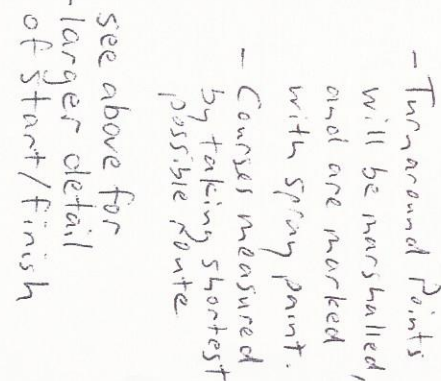 - Turnaround Points
will be marshalled,
and are marked
with spray paint.
- Courses measured
by taking shortest
possible route
see above for
larger detail
of start/finish